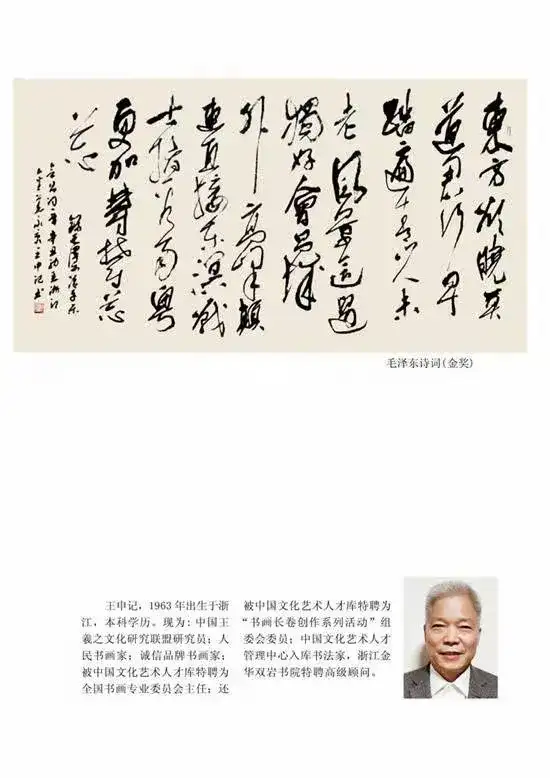 東方欲曉莫
道君行早
踏遍青山人未
老風景這邊
獨好會昌城
外高峰顛
連直接东溟戰
士指看南粵
更加鬱鬱葱
葱
錄毛澤東清平乐
会昌词一首辛丑
王申记书
毛泽东诗词(金奖)
王申记，1963年出生于浙
江，本科学历。现为:中国王
羲之文化研究联盟研究员；人
民书画家；诚信品牌书画家；
被中国文化艺术人才库特聘为
全国书画专业委员会主任；还
被中国文化艺术人才库特聘为
“书画长卷创作系列活动”组
委会委员；中国文化艺术人才
管理中心入库书法家，浙江金
华双岩书院特聘高级顾问。